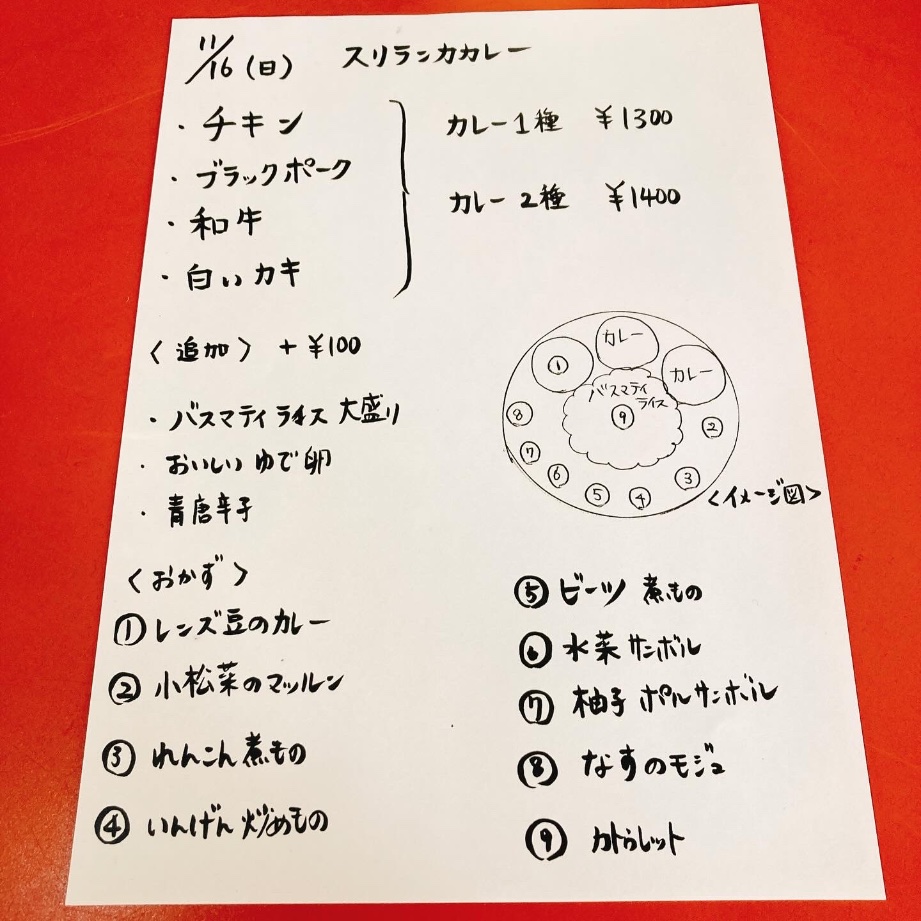 11/16(日) スリランカカレー
・チキン
・ブラックポーク
・和牛
・白いカキ
カレー1種 ¥1300
カレー2種 ¥1400
〈追加〉 + ¥100
・バスマティライス 大盛り
・おいしいゆで卵
・青唐辛子
カレー
カレー
①
バスマティ
ライス
⑨
⑧
②
⑦
⑥
③
⑤
④
<イメージ図>
〈おかず〉
① レンズ豆のカレー
② 小松菜のマッルン
③ れんこん煮もの
④ いんげん炒めもの
⑤ ビーツ 煮もの
⑥ 水菜サンボル
⑦ 柚子 ポルサンボル
⑧ なすのモジュ
⑨ カトゥレット